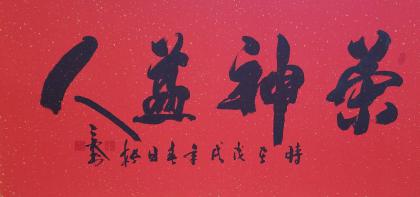 茶神益人
時至戊戌年春日於